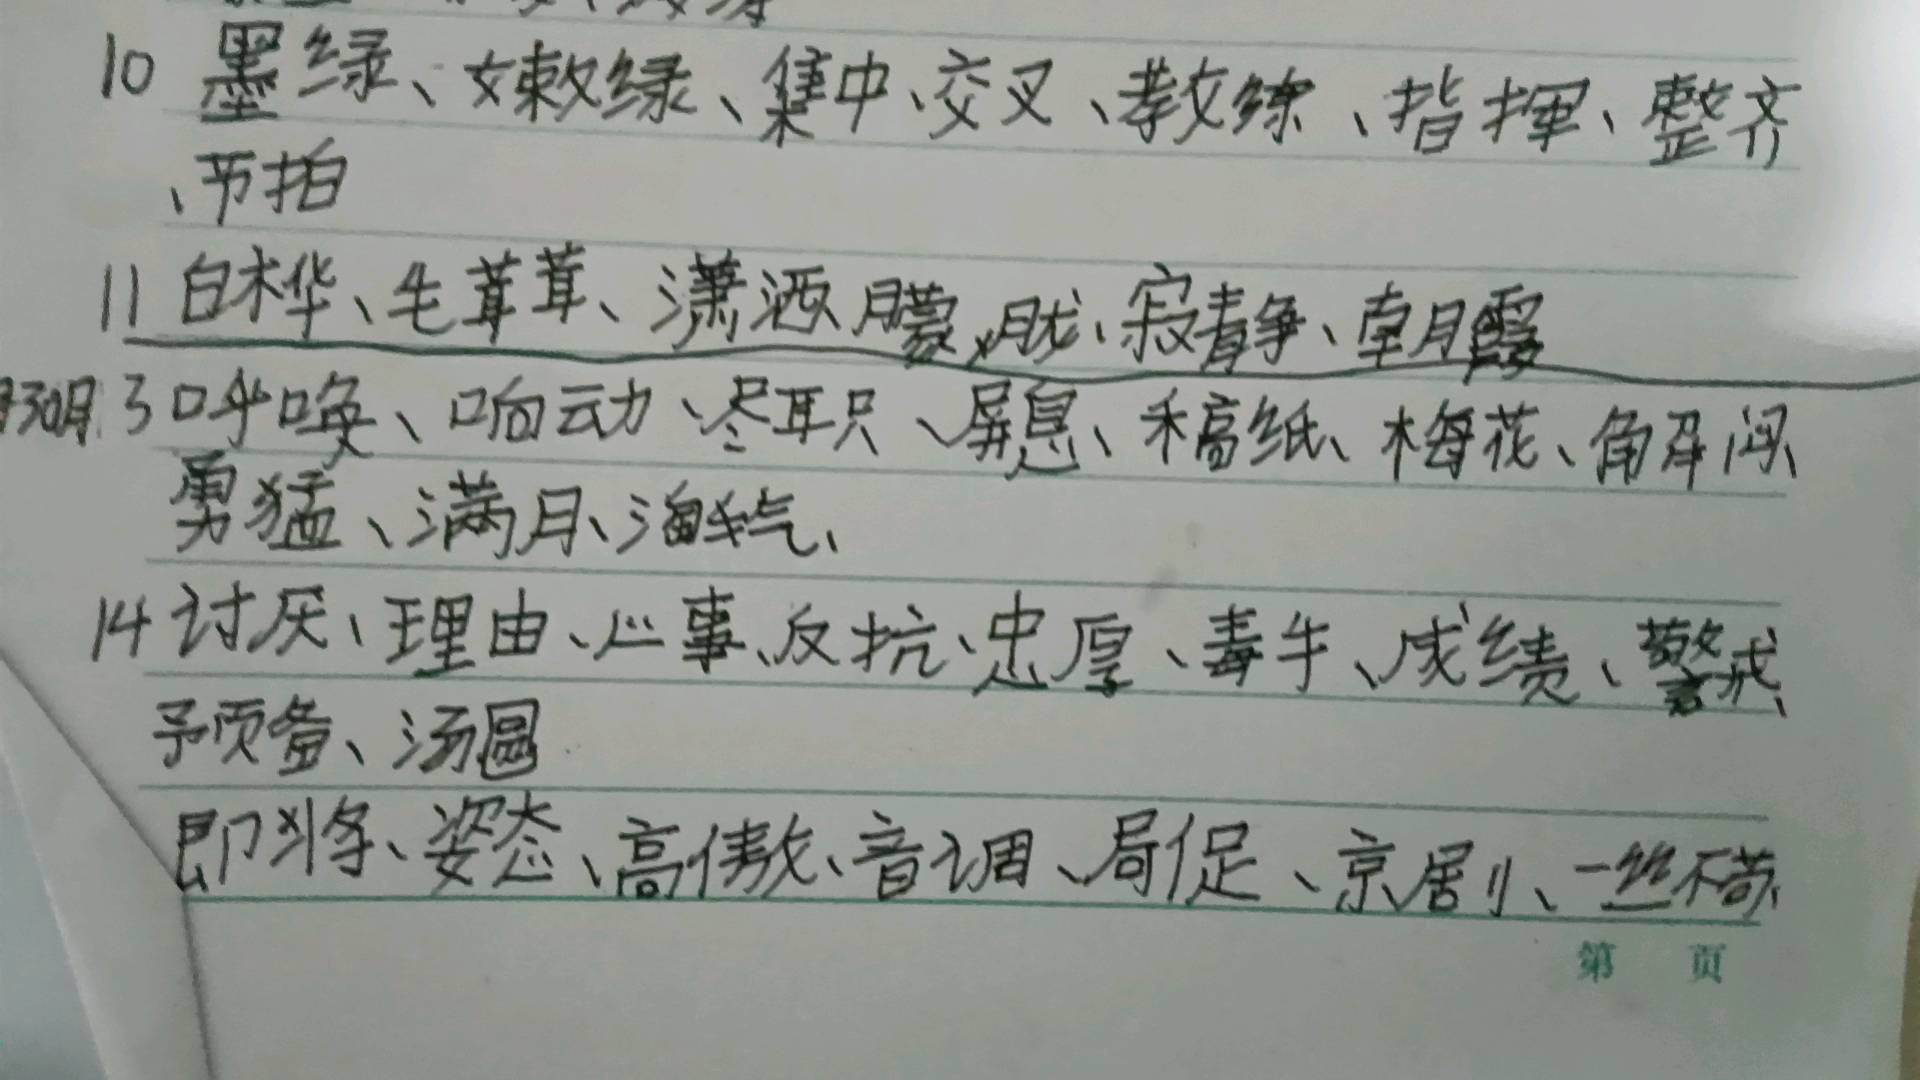 10 墨绿、嫩绿、集中、交叉、教练、指挥、整齐
、节拍
11 白桦、毛茸茸、潇洒、朦胧、寂静、朝霞
3 呼唤、响动、尽职、屏息、稿纸、梅花、角洋闷、
勇猛、满月、淘气、
14 讨厌、理由、心事、反抗、忠厚、毒牛、成绩、警戒、
预备、汤圆
即将、姿态、高傲、音调、局促、京剧、一丝不苟、
第 页